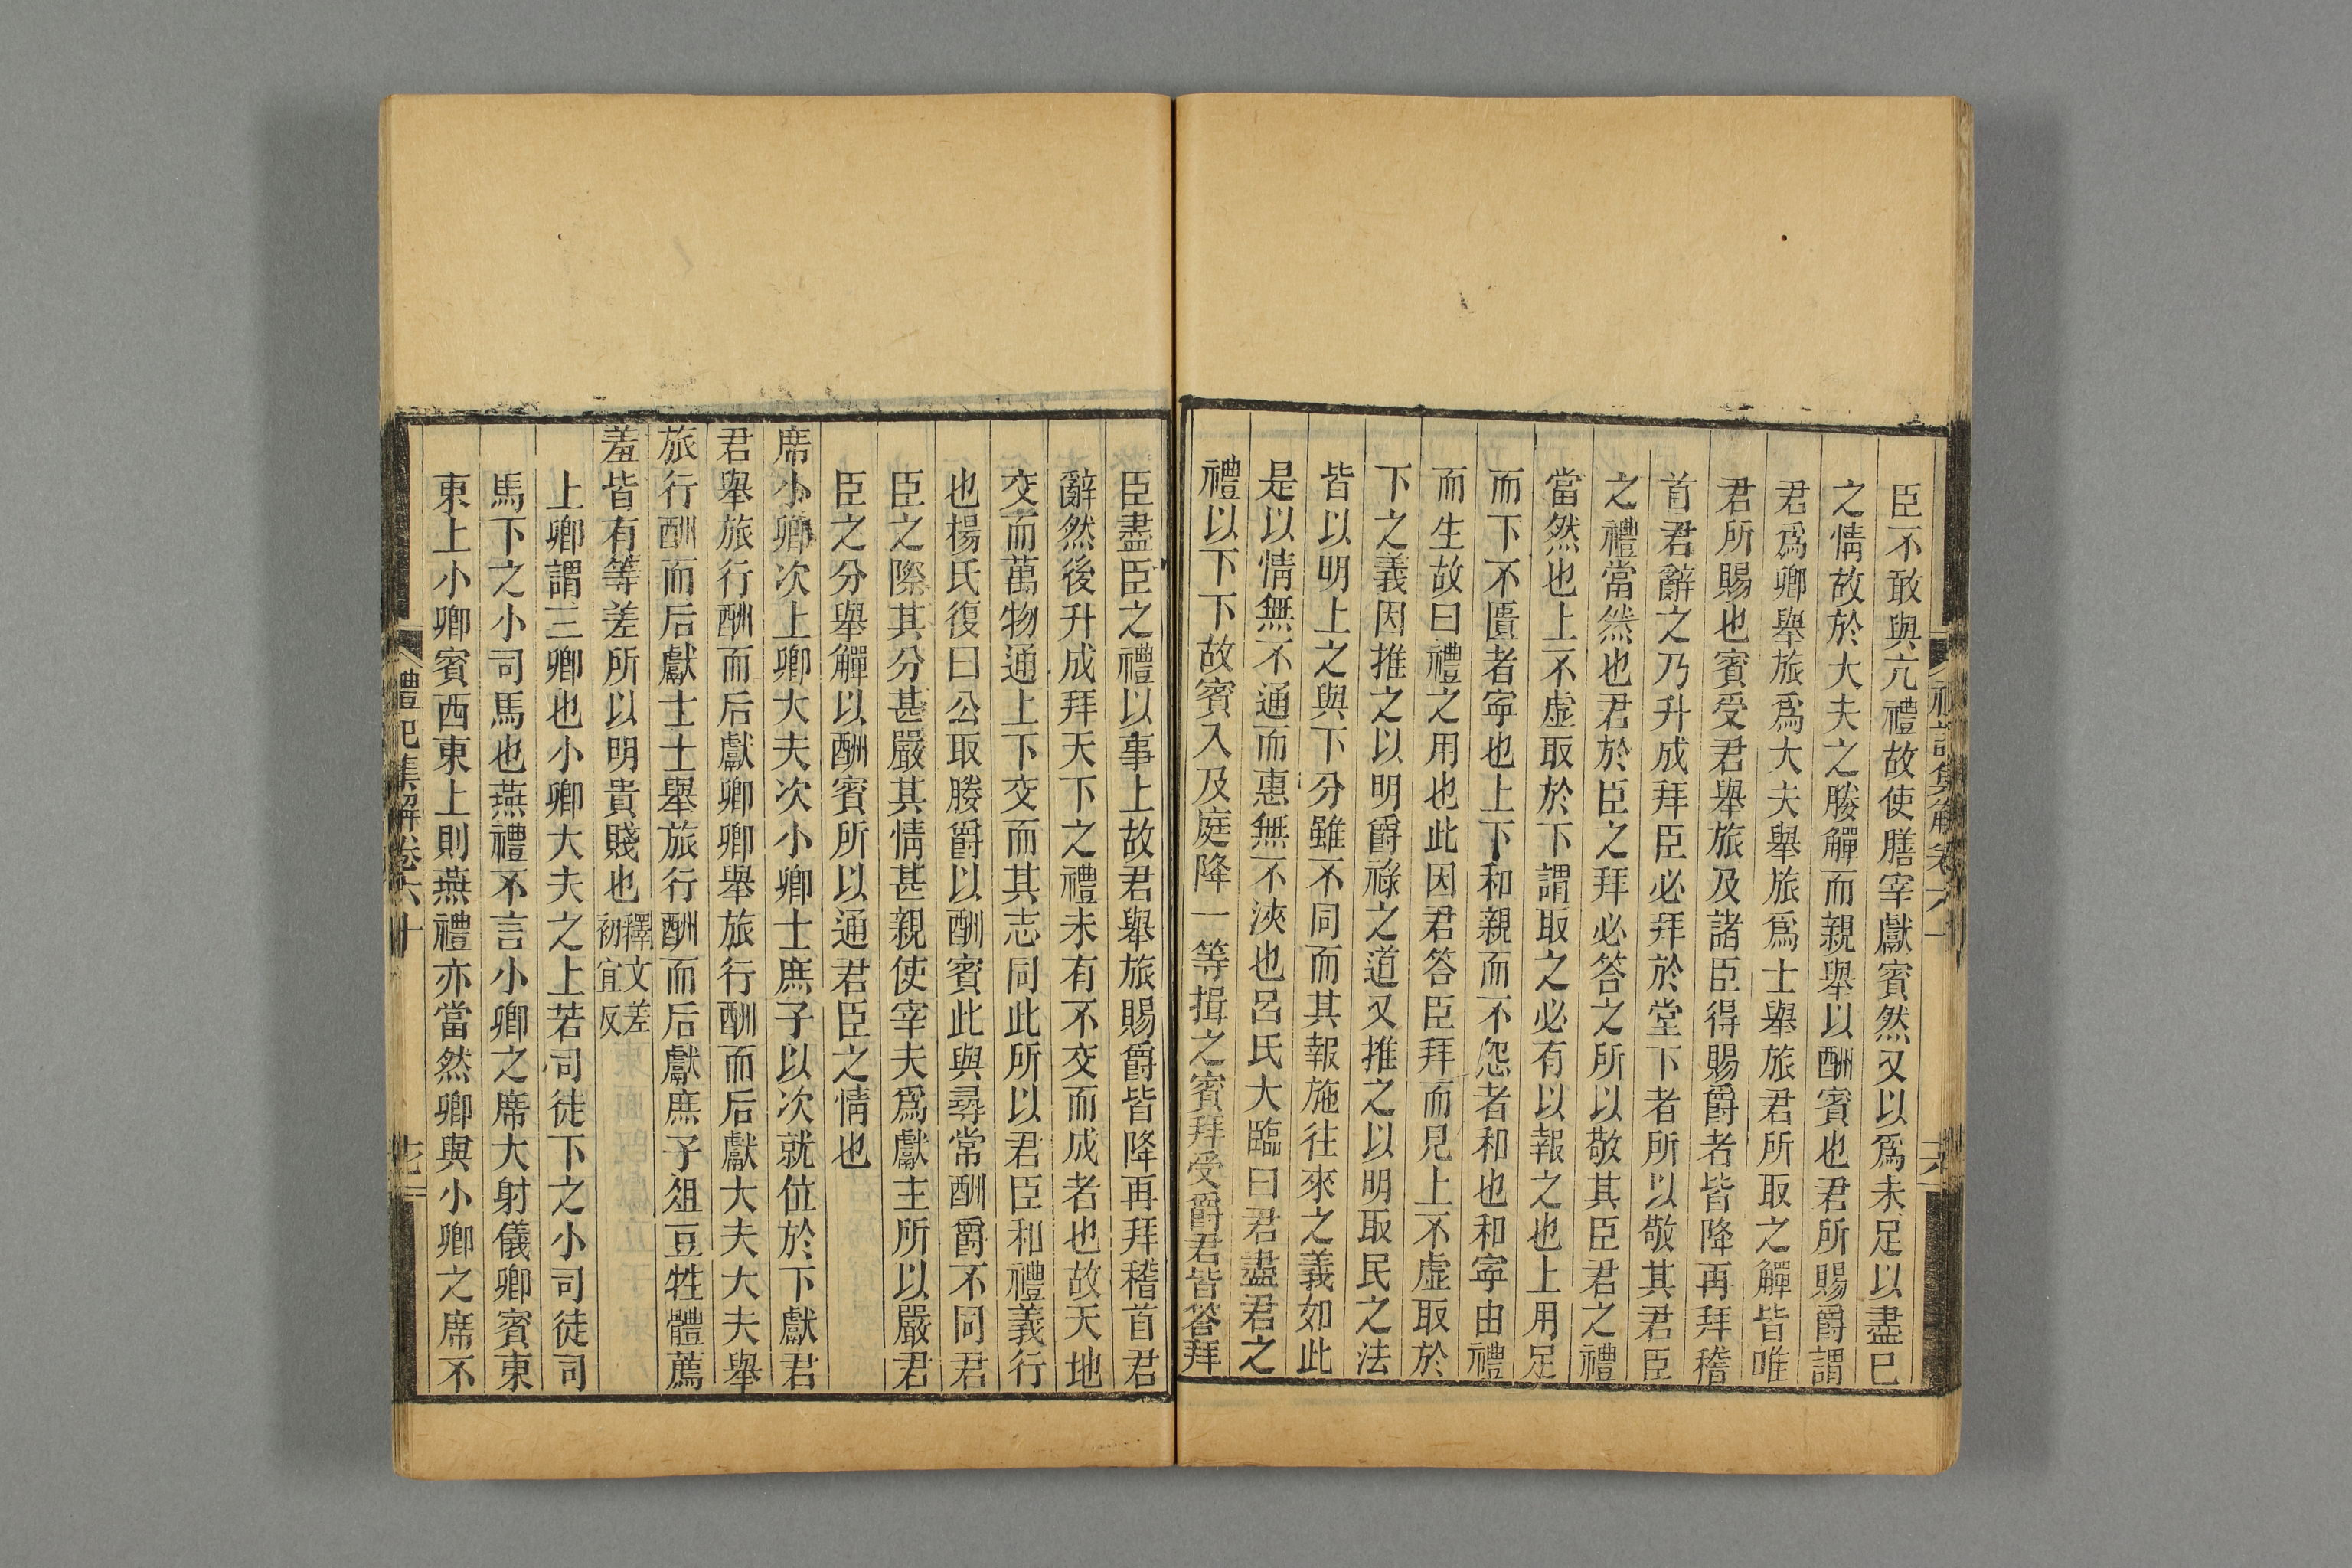 臣不敢與亢禮故使膳宰獻賓然又以爲未足以盡巳
之情故於大夫之媵觶而親舉以酬賓也君所賜爵謂
君爲卿舉旅爲大夫舉旅爲士舉旅君所取之觶皆唯
君所賜也賓受君舉旅及諸臣得賜爵者皆降再拜稽
首君辭之乃升成拜臣必拜於堂下者所以敬其君臣
之禮當然也君於臣之拜必答之所以敬其臣君之禮
當然也上不虛取於下謂取之必有以報之也上用足
而下不匱者寧也上下和親而不怨者和也和寧由禮
而生故曰禮之用也此因君答臣拜而見上不虛取於
下之義因推之以明爵祿之道又推之以明取民之法
皆以明上之與下分雖不同而其報施往來之義如此
是以情無不通而惠無不浹也呂氏大臨曰君盡君之
禮以下下故賓入及庭降一等揖之賓拜受爵君皆答拜
臣盡臣之禮以事上故君舉旅賜爵皆降再拜稽首君
辭然後升成拜天下之禮未有不交而成者也故天地
交而萬物通上下交而其志同此所以君臣和禮義行
也楊氏復曰公取媵爵以酬賓此與尋常酬爵不同君
臣之際其分甚嚴其情甚親使宰夫爲獻主所以嚴君
臣之分舉觶以酬賓所以通君臣之情也
席小卿次上卿大夫次小卿士庶子以次就位於下獻君
君舉旅行酬而后獻卿卿舉旅行酬而后獻大夫大夫舉
旅行酬而后獻士士舉旅行酬而后獻庶子俎豆牲體薦
羞皆有等差所以明貴賤也釋文差初宜反
上卿謂三卿也小卿大夫之上若司徒下之小司徒司
馬下之小司馬也燕禮不言小卿之席大射儀卿賓東
東上小卿賓西東上則燕禮亦當然卿與小卿之席不
禮記集解卷六十